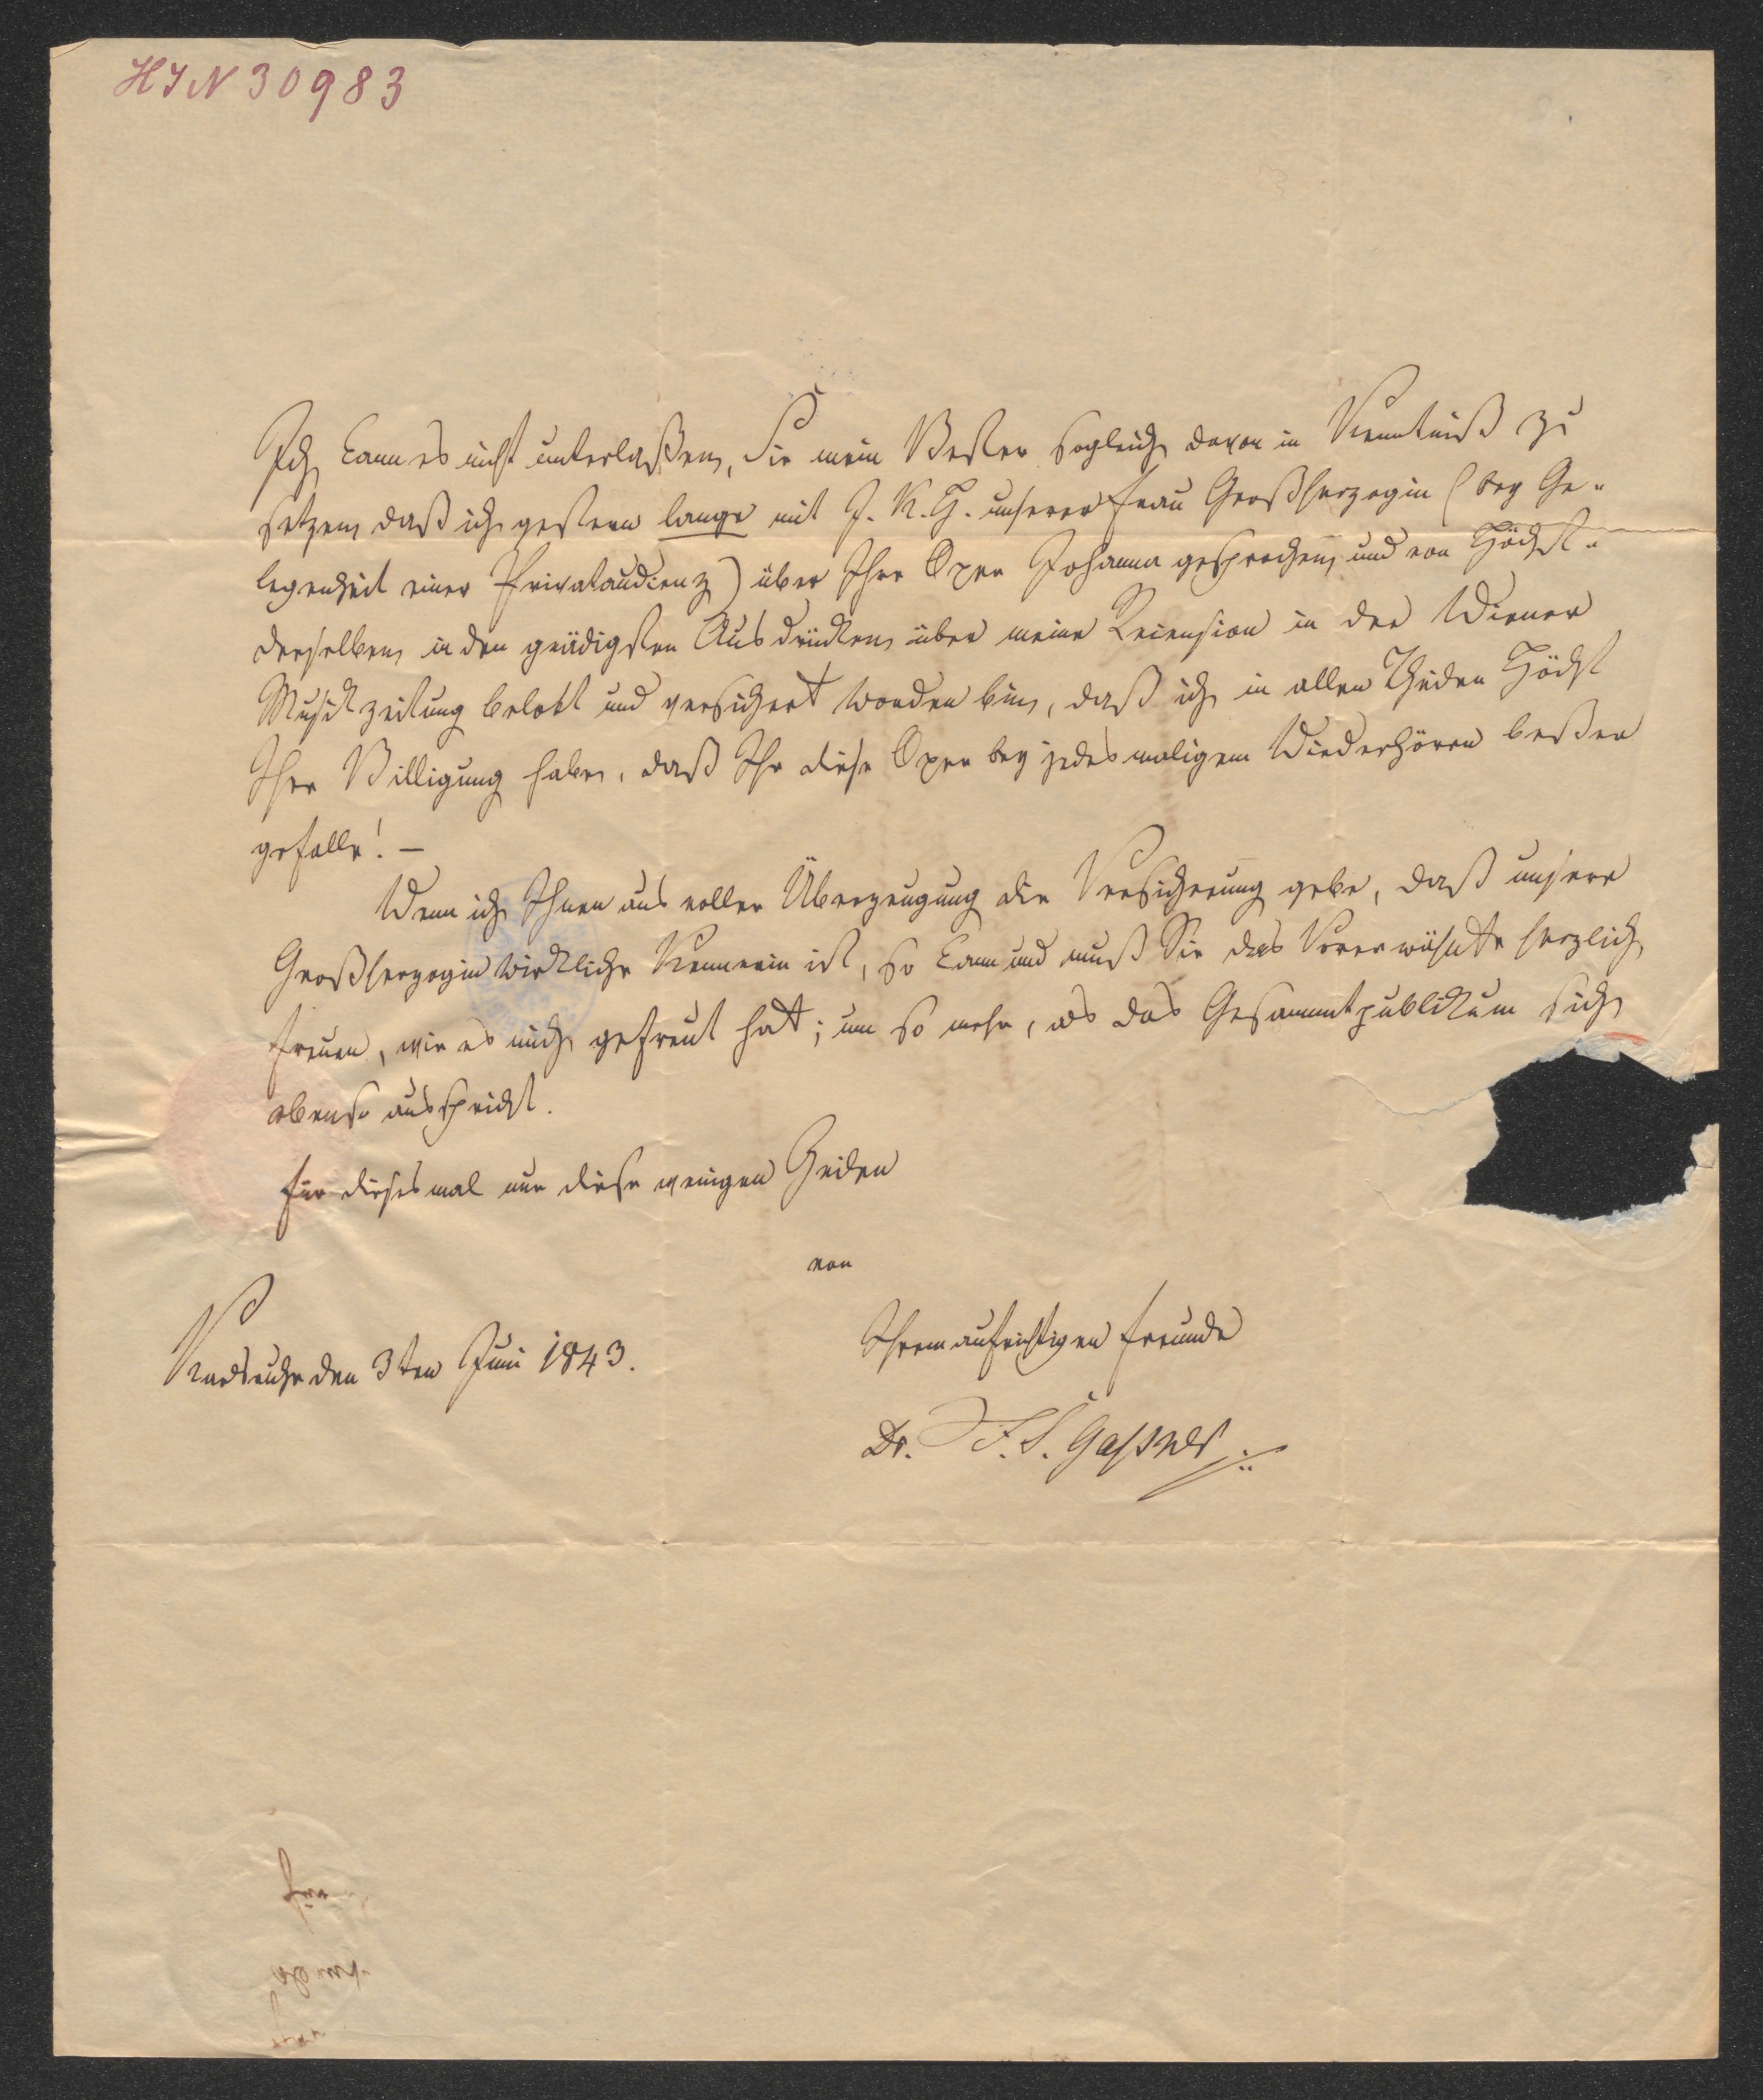 HIN 30983
Ich kann es nicht unterlaßen, Sie mein Bester sogleich davon in Kenntniß zu
setzen, daß ich gestern lange mit J. K. H. unserer Frau Großherzogin (bey Ge-
legenheit einer Privataudienz) über Ihre Oper Johanna gesprochen, und von Höchst-
derselben in den gnädigsten Ausdrücken über meine Recension in der Wiener
Musikzeitung belobt und versichert worden bin, daß ich in allen Theilen Höchst
Ihre Billigung habe, daß Ihr diese Oper bey jedesmaligem Wiederhören beßer
gefalle! —
Wenn ich Ihnen aus voller Überzeugung die Versicherung gebe, daß unsere
Großherzogin wirkliche Kennerin ist, so kann und muß Sie das Vorerwähnte herzlich
freuen, wie es mich gefreut hat; um so mehr, als das Gesammtpublikum sich
ebenso ausspricht.
Für diesesmal nur diese wenigen Zeilen
von
Ihrem aufrichtigen Freunde
Karlsruhe den 3ten Juni 1843.
Dr. F. S. Gassner